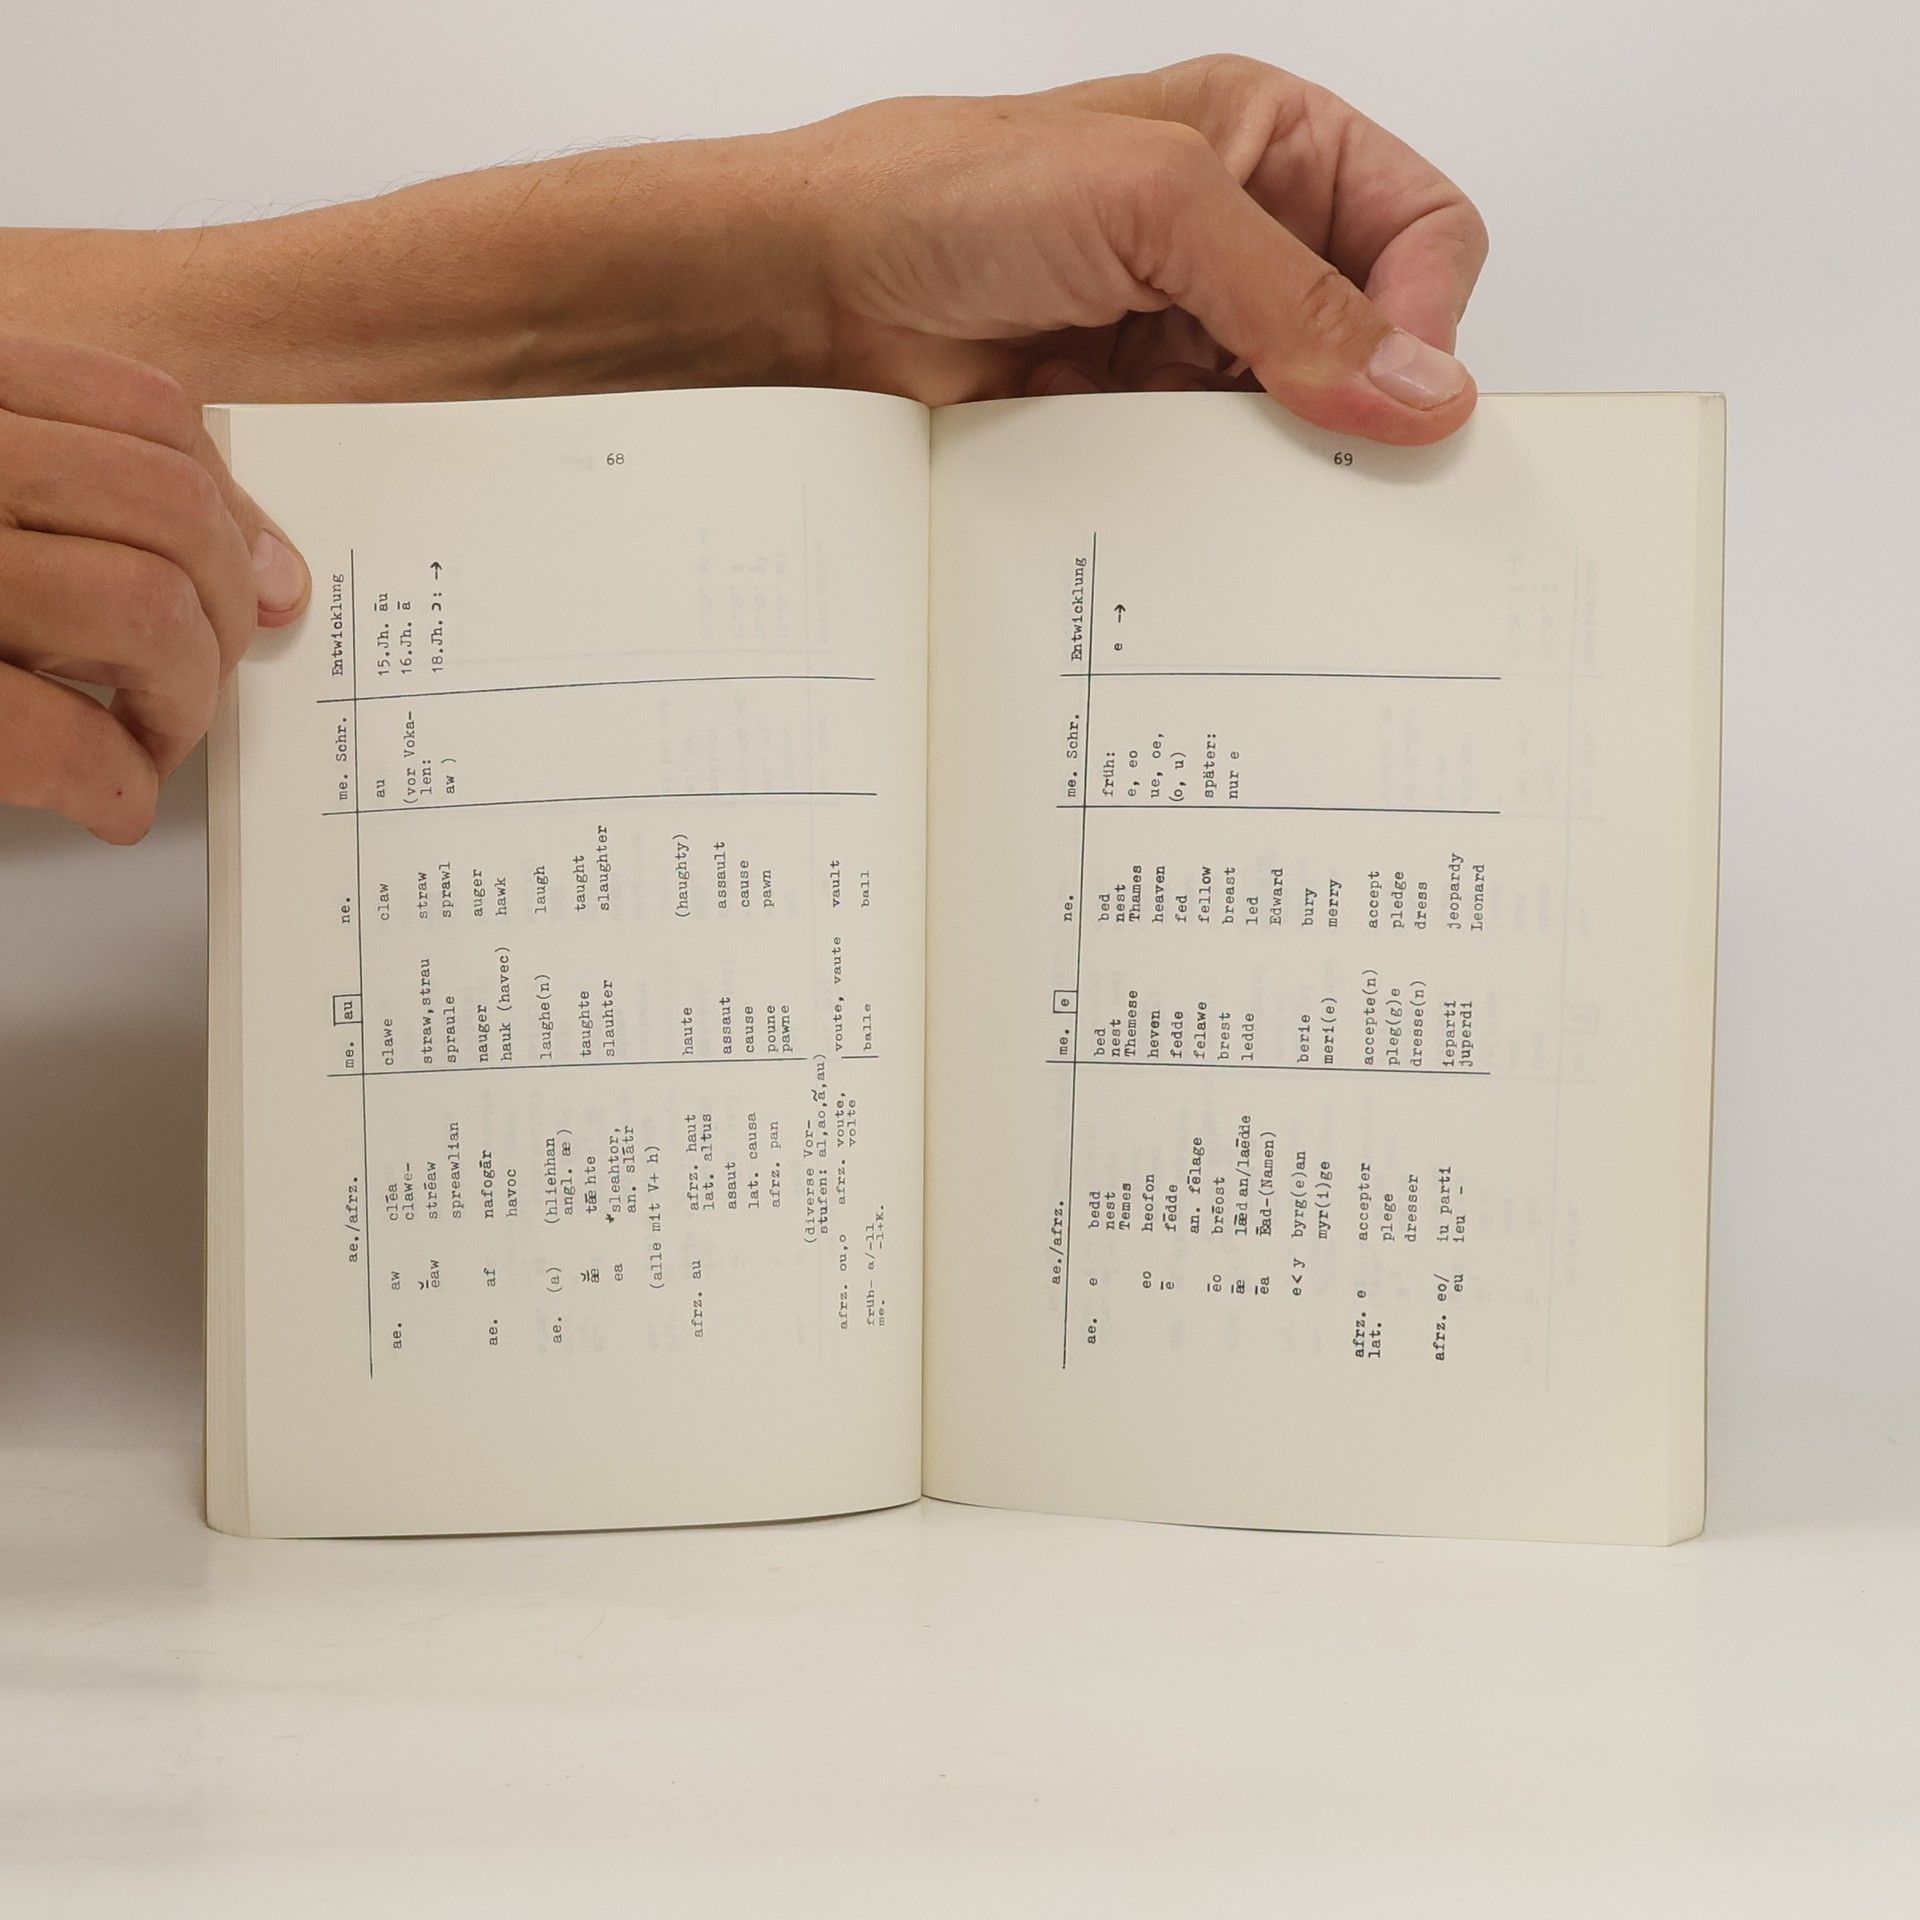 68
ae./afrz. me. au ne. me. Schr. Entwicklung
ae. aw clēa clawe claw au 15.Jh. āu
clawe- (vor Voka- 16.Jh. ā
ĕ̄aw strēaw straw,strau straw len:
spreawlian spraule sprawl aw ) 18.Jh. ɔ: →
ae. af nafogār nauger auger
havoc hauk (havec) hawk
ae. (a) (hliehhan laughe(n) laugh
angl. æ )
ǣ̆ tǣhte taughte taught
ea *sleahtor, slauhter slaughter
an. slātr
(alle mit V+ h)
afrz. au afrz. haut haute (haughty)
lat. altus
asaut assaut assault
lat. causa cause cause
afrz. pan poune pawn
pawne
(diverse Vor-
stufen: al,ao,ã,au)
afrz. ou,o afrz. voute, voute, vaute vault
volte
früh- a/-ll balle ball
me. -l+K.
69
ae./afrz. me. e ne. me. Schr. Entwicklung
ae. e bedd bed bed früh: e →
nest nest nest
Temes Themese Thames e, eo
eo heofon heven heaven ue, oe,
ē fēdde fedde fed (o, u)
an. fēlage felawe fellow
ēo brēost brest breast später:
ǣ lǣdan/laēdde ledde led nur e
ēa Ēad-(Namen) Edward
e < y byrg(e)an berie bury
myr(i)ge meri(e) merry
afrz. e accepter accepte(n) accept
lat. plege pleg(g)e pledge
dresser dresse(n) dress
afrz. eo/ iu parti ieparti jeopardy
eu ieu – juperdi Leonard